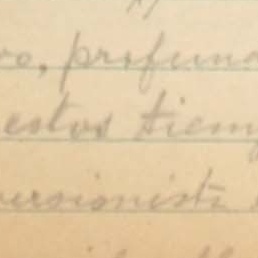 vo, profund
estos tiem
versionist